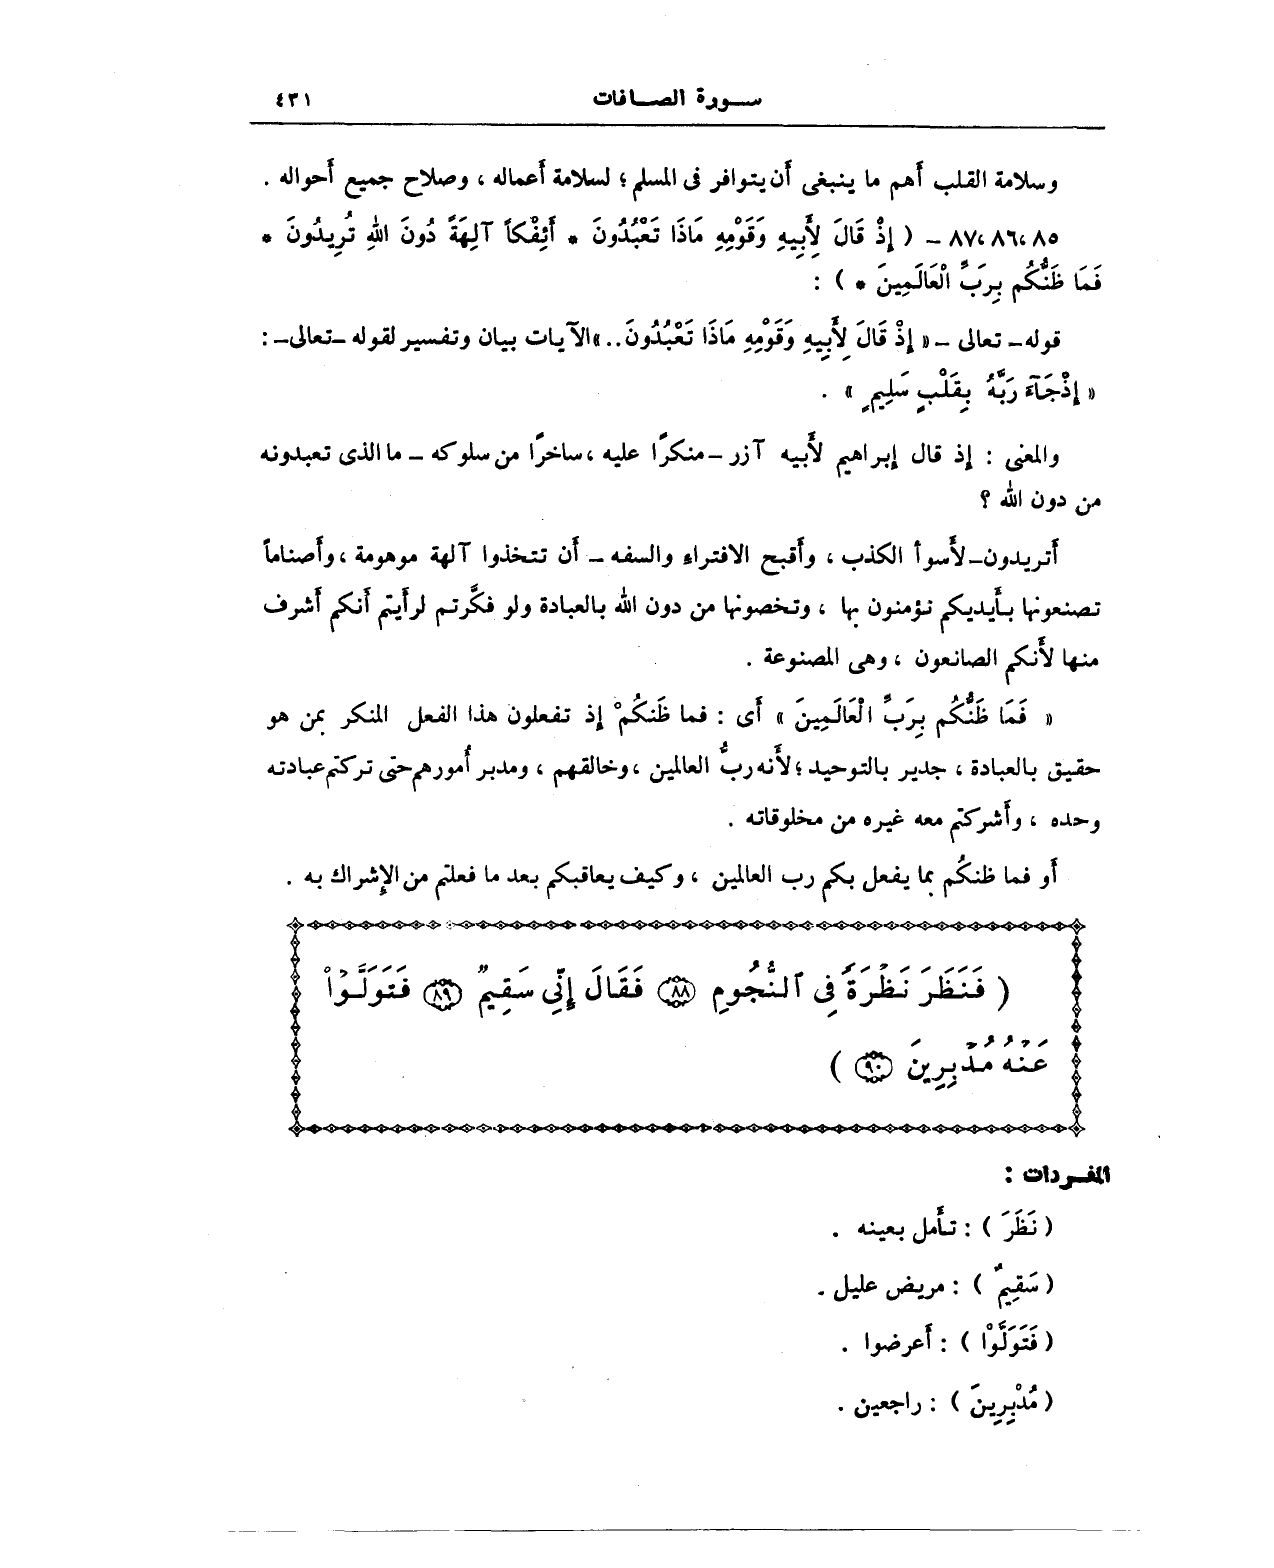 سورة الصافات ٤٣١
وسلامة القلب أهم ما ينبغى أن يتوافر فى المسلم ؛ لسلامة أعماله ، وصلاح جميع أحواله .
٨٥ ، ٨٦ ، ٨٧ – ( إِذْ قَالَ لِأَبِيهِ وَقَوْمِهِ مَاذَا تَعْبُدُونَ * أَئِفْكاً آلِهَةً دُونَ اللهِ تُرِيدُونَ *
فَمَا ظَنُّكُم بِرَبِّ الْعَالَمِينَ * ) :
قوله – تعالى – « إِذْ قَالَ لِأَبِيهِ وَقَوْمِهِ مَاذَا تَعْبُدُونَ .. » الآيات بيان وتفسير لقوله – تعالى – :
« إِذْ جَآءَ رَبَّهُ بِقَلْبٍ سَلِيمٍ » .
والمعنى : إذ قال إبراهيم لأبيه آزر – منكرًا عليه ، ساخرًا من سلوكه – ما الذى تعبدونه
من دون الله ؟
أتريدون – لأسوأ الكذب ، وأقبح الافتراء والسفه – أن تتخذوا آلهة موهومة ، وأصناماً
تصنعونها بأيديكم تؤمنون بها ، وتخصونها من دون الله بالعبادة ولو فكَّرتم لرأيتم أنكم أشرف
منها لأنكم الصانعون ، وهى المصنوعة .
« فَمَا ظَنُّكُم بِرَبِّ الْعَالَمِينَ » أى : فما ظَنكُمْ إذ تفعلون هذا الفعل المنكر بمن هو
حقيق بالعبادة ، جدير بالتوحيد ؛ لأنه ربُّ العالمين ، وخالقهم ، ومدبر أُمورهم حتى تركتم عبادته
وحده ، وأشركتم معه غيره من مخلوقاته .
أو فما ظنكُم بما يفعل بكم رب العالمين ، وكيف يعاقبكم بعد ما فعلتم من الإشراك به .
( فَنَظَرَ نَظْرَةً فِى ٱلنُّجُومِ ٨٨ فَقَالَ إِنِّى سَقِيمٌ ٨٩ فَتَوَلَّوْا۟
عَنْهُ مُدْبِرِينَ ٩٠ )
المفردات :
( نَظَرَ ) : تأمل بعينه .
( سَقِيمٌ ) : مريض عليل .
( فَتَوَلَّوْا ) : أعرضوا .
( مُدْبِرِينَ ) : راجعين .